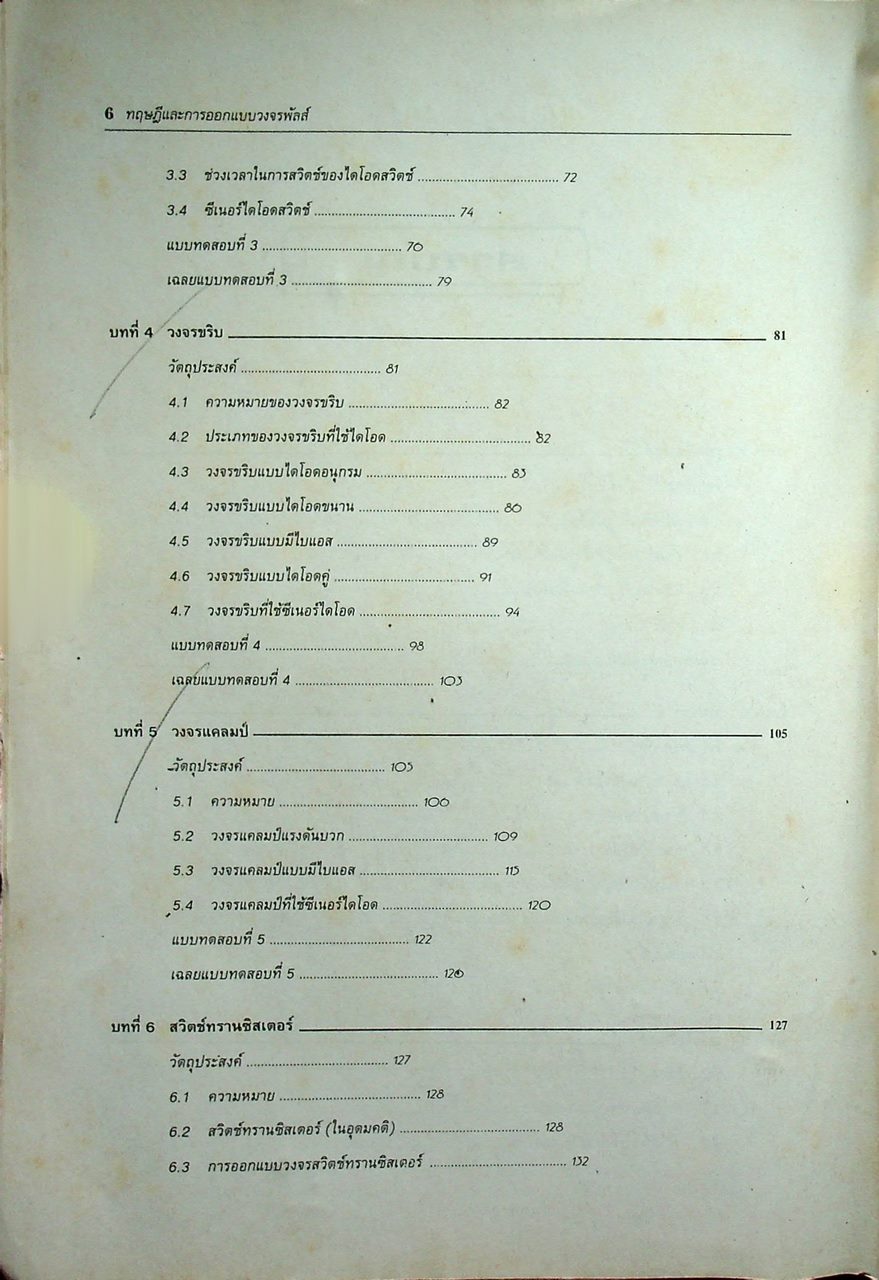 6 ทฤษฎีและการออกแบบวงจรพัลส์
3.3 ช่วงเวลาในการสวิตช์ของไดโอดสวิตช์ ........................................ 72
3.4 ซีเนอร์ไดโอดสวิตช์ ........................................ 74
แบบทดสอบที่ 3 ........................................ 76
เฉลยแบบทดสอบที่ 3 ........................................ 79
บทที่ 4 วงจรขริบ 81
วัตถุประสงค์ ........................................ 81
4.1 ความหมายของวงจรขริบ ........................................ 82
4.2 ประเภทของวงจรขริบที่ใช้ไดโอด ........................................ 82
4.3 วงจรขริบแบบไดโอดอนุกรม ........................................ 83
4.4 วงจรขริบแบบไดโอดขนาน ........................................ 86
4.5 วงจรขริบแบบมีไบแอส ........................................ 89
4.6 วงจรขริบแบบไดโอดคู่ ........................................ 91
4.7 วงจรขริบที่ใช้ซีเนอร์ไดโอด ........................................ 94
แบบทดสอบที่ 4 ........................................ 98
เฉลยแบบทดสอบที่ 4 ........................................ 103
บทที่ 5 วงจรแคลมป์ 105
วัตถุประสงค์ ........................................ 105
5.1 ความหมาย ........................................ 106
5.2 วงจรแคลมป์แรงดันบวก ........................................ 109
5.3 วงจรแคลมป์แบบมีไบแอส ........................................ 115
5.4 วงจรแคลมป์ที่ใช้ซีเนอร์ไดโอด ........................................ 120
แบบทดสอบที่ 5 ........................................ 122
เฉลยแบบทดสอบที่ 5 ........................................ 126
บทที่ 6 สวิตช์ทรานซิสเตอร์ 127
วัตถุประสงค์ ........................................ 127
6.1 ความหมาย ........................................ 128
6.2 สวิตช์ทรานซิสเตอร์ (ในอุดมคติ) ........................................ 128
6.3 การออกแบบวงจรสวิตช์ทรานซิสเตอร์ ........................................ 132